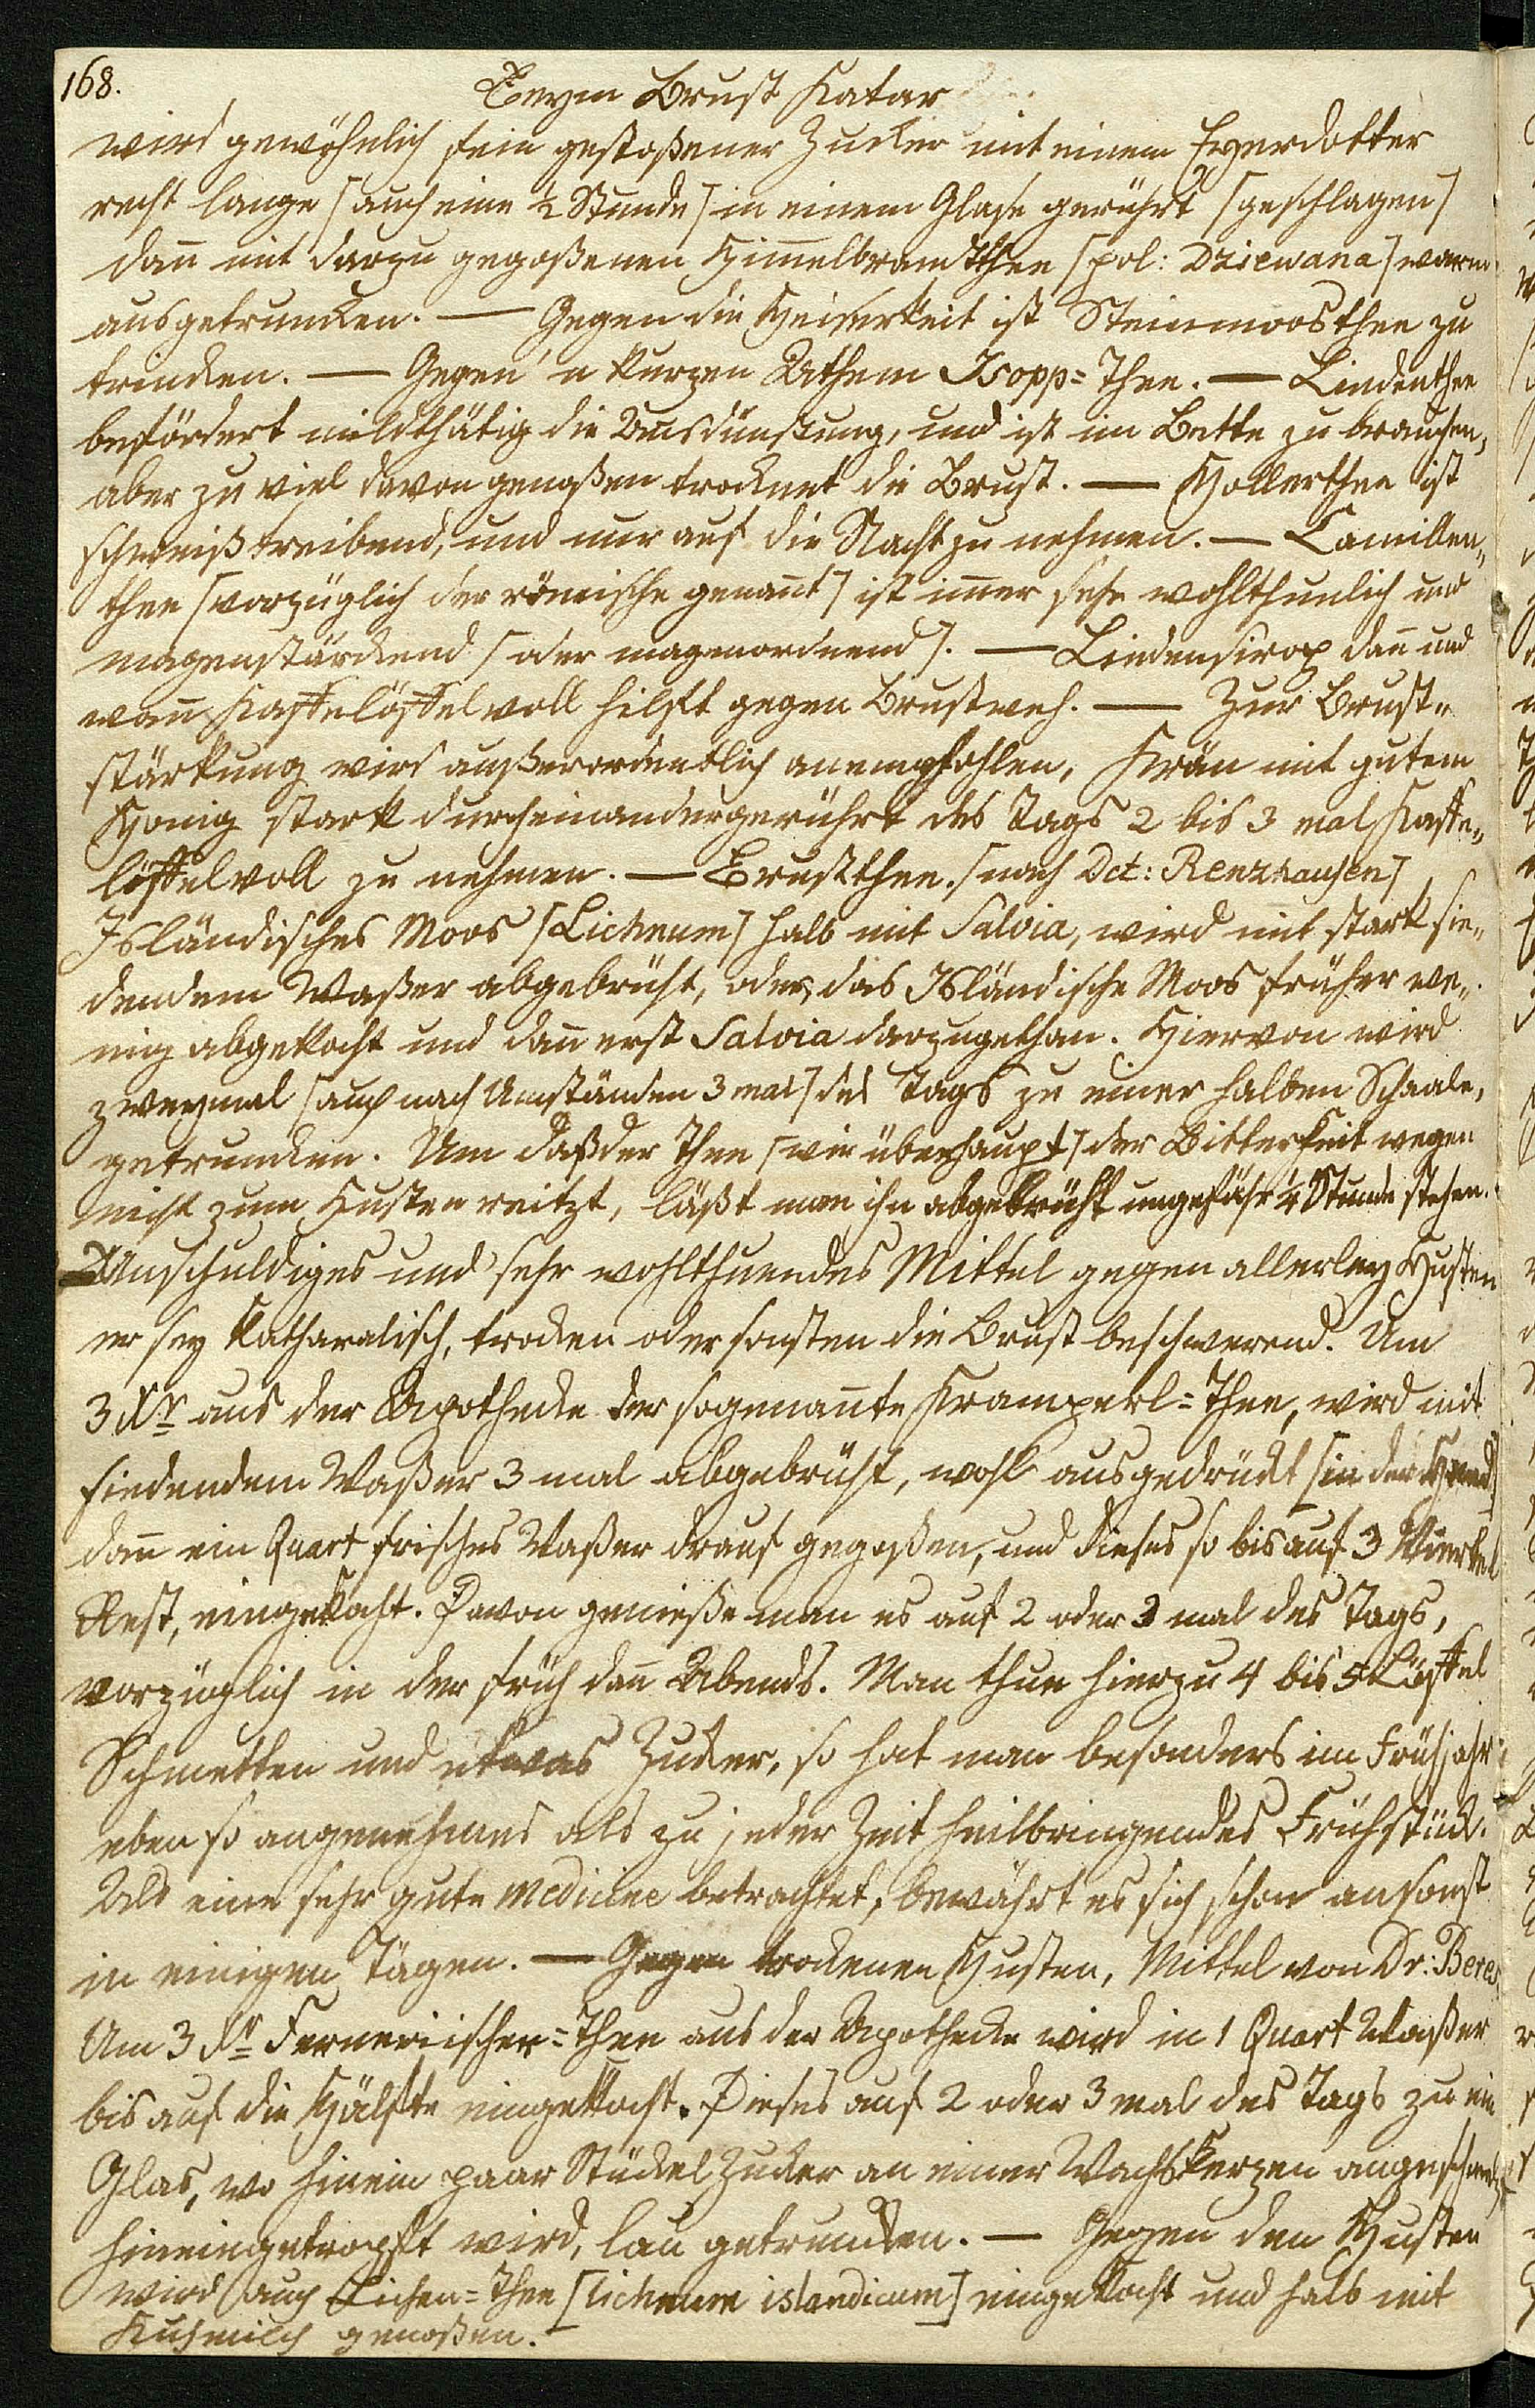 168.
Beym Brust Katar
wird gewöhnlich fein gestoßener Zucker mit einem Eyerdotter
recht lange [auch eine ½ Stunde] in einem Glase gerührt [geschlagen]
dañ mit darzu gegoßenen Him̃elbrandthee [pol: Dziewana] warm
ausgetruncken. — Gegen die Heiserkeit ist Steinmoosthee zu
trincken. — Gegen'n kurzen Athem Isopp=Thee. — Lindenthee
befördert mildthätig die Ausdünstung, und ist im Bette zu brauchen,
aber zu viel davon genoßen trocknet die Brust. — Hollerthee ist
schweiß treibend, und nur auf die Nacht zu nehmen. — Camillen„
thee [vorzüglich der römische genañt] ist im̃er sehr wohlthunlich und
magenstärckend [oder magenordnend]. — Lindensirop dañ und
wañ Kaffelöffel voll hilft gegen Brustweh. — Zur Brust„
stärkung wird außerordentlich anempfohlen, Krän mit gutem
Honig stark durcheinandergerührt des Tags 2 bis 3 mal Kaffe„
löffelvoll zu nehmen. — Brustthee. [nach Dct: Renzhausen]
Isländisches Moos [Licheum] halb mit Salvia, wird mit stark sie„
dendem Waßer abgebrüht, oder, das Isländische Moos früher we„
nig abgekocht und dañ erst Salvia darzugethan. Hiervon wird
zweymal [auch nach Umständen 3 mal] des Tags zu einer halben Schaale,
getruncken. Um daß der Thee [wie überhaupt] der Bitterkeit wegen
nicht zum Husten reitzt, läßt man ihn abgebrüht ungefähr ¼ Stunde stehen.
Unschuldiges und sehr wohlthuendes Mittel gegen allerley Husten
er sey katharalisch, trocken oder sonsten die Brust beschwerend. Um
3 Xr aus der Apothecke der sogenañte Kramperl=Thee, wird mit
siedendem Waßer 3 mal abgebrüht, wohl ausgedrückt [in der Hand]
dañ ein Quart frisches Waßer drauf gegoßen, und dieses so bis auf 3 Viertel
Rest, eingekocht. Davon genieße man es auf 2 oder 3 mal des Tags,
vorzüglich in der früh dañ Abends. Man thue hierzu 4 bis 5 Löffel
Schmetten und etwas Zucker, so hat man besonders im Frühjahr
eben so angenehmes als zu jeder Zeit heilbringendes Frühstück.
Als eine sehr gute Medicine betrachtet, bewährt es sich schon ansonst
in einigen Tägen. — Gegen trockenen Husten, Mittel von Dr: Beres
Um 3 Xr Ferneriischer=Thee aus der Apothecke wird in 1 Quart Waßer
bis auf die Hälfte eingekocht. Dieses auf 2 oder 3 mal des Tags zu ein
Glas, wo hinein paar Stückel Zucker an einer Wachskerzen
hineingetropft wird, lau getruncken. — Gegen den Husten
wird auch Lichen=Thee [licheum islandicum] eingekocht und halb mit
Kuhmilch genoßen.